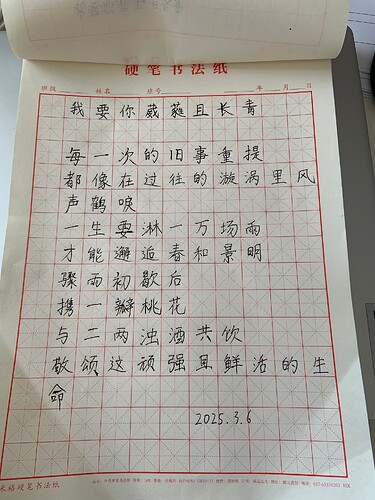 硬笔书法纸
班级 姓名 班号 年 月 日
我要你葳蕤且长青
每一次的旧事重提
都像在过往的漩涡里风
声鹤唳
一生要淋一万场雨
才能邂逅春和景明
骤雨初歇后
携一瓣桃花
与二两浊酒共饮
敬颂这顽强且鲜活的生
命
2025.3.6
米格硬笔书法纸